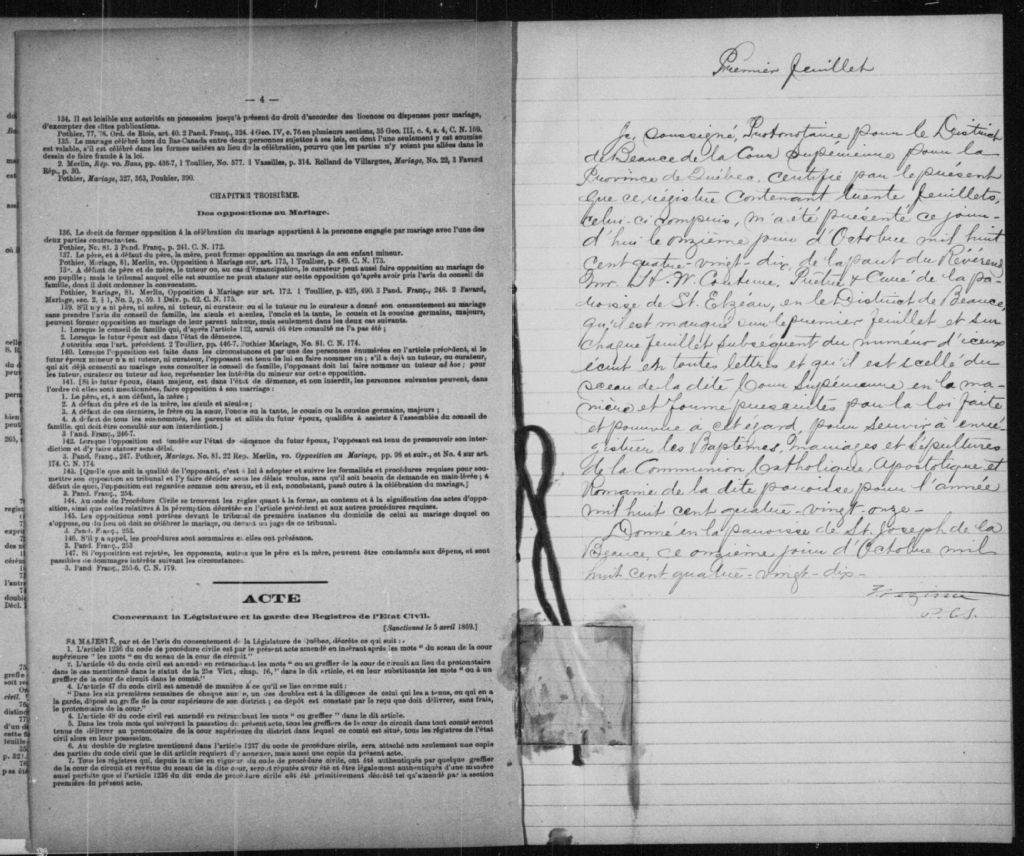 — 4 —
134. Il est loisible aux autorités en possession jusqu'à présent du droit d'accorder des licences ou dispenses pour mariage,
d'exempter des dites publications.
Pothier, 77, 78. Ord. de Blois, art 40. 2 Pand. Franç., 224. 4 Geo. IV, c. 76 en plusieurs sections, 35 Geo. III, c. 4, s. 4, C. N. 169.
135. Le mariage célébré hors du Bas-Canada entre deux personnes sujettes à ses lois, ou dont l'une seulement y est soumise
est valable, s'il est célébré dans les formes usitées au lieu de la célébration, pourvu que les parties n'y soient pas allées dans le
dessin de faire fraude à la loi.
2. Merlin, Rép. vo. Bans, pp. 436-7, 1 Toullier, No. 577. 1 Vasseilles, p. 314. Rolland de Villargues, Mariage, No. 22, 3 Favard
Rép., p. 30.
Pothier, Mariage, 327, 363, Pouhier, 290.
CHAPITRE TROISIÈME.
Des oppositions au Mariage.
136. Le droit de former opposition à la célébration du mariage appartient à la personne engagée par mariage avec l'une des
deux parties contractantes.
Pothier, No. 81. 3 Pand. Franç., p. 241. C. N. 172.
137. Le père, et à défaut du père, la mère, peut former opposition au mariage de son enfant mineur.
Pothier, Mariage, 81. Merlin, vo. Opposition à Mariage sur art. 173, 1 Toullier, p. 489. C. N. 173.
138. A défaut de père et de mère, le tuteur ou, au cas d'émancipation, le curateur peut aussi faire opposition au mariage de
son pupille ; mais le tribunal auquel elle est soumise ne peut statuer sur cette opposition qu'après avoir pris l'avis du conseil de
famille, dont il doit ordonner la convocation.
Pothier, Mariage, 81. Merlin, Opposition à Mariage sur art. 172. 1 Toullier, p. 425, 490. 3 Pand. Franç., 248. 2 Favard,
Mariage, sec. 2, § 1, No. 3, p. 59. 1 Delv. p. 62. C. N. 175.
139. S'il n'y a ni père, ni mère, ni tuteur, ni curateur ou si le tuteur ou le curateur a donné son consentement au mariage
sans prendre l'avis du conseil de famille, les aïeuls et aïeules, l'oncle et la tante, le cousin et la cousine germains, majeurs,
peuvent former opposition au mariage de leur parent mineur, mais seulement dans les deux cas suivants.
1. Lorsque le conseil de famille qui, d'après l'article 122, aurait dû être consulté ne l'a pas été ;
2. Lorsque le futur époux est dans l'état de démence.
Autorités sous l'art. précédent 2 Toullier, pp. 446-7. Pothier Mariage, No. 81. C. N. 174.
140. Lorsque l'opposition est faite dans les circonstances et par une des personnes énumérées en l'article précédent, si le
futur époux mineur n'a ni tuteur, ni curateur, l'opposant est tenu de lui en faire nommer un ; s'il a déjà un tuteur, ou curateur,
qui ait déjà consenti au mariage sans consulter le conseil de famille, l'opposant doit lui faire nommer un tuteur ad hoc ; pour
les tuteur, curateur ou tuteur ad hoc, représenter les intérêts du mineur sur cette opposition.
141. [Si le futur époux, étant majeur, est dans l'état de démence, et non interdit, les personnes suivantes peuvent, dans
l'ordre où elles sont mentionnées, faire opposition à son mariage :
1. Le père, et, à son défaut, la mère ;
2. A défaut du père et de la mère, les aïeuls et aïeules ;
3. A défaut de ces derniers, le frère ou la sœur, l'oncle ou la tante, le cousin ou la cousine germains, majeurs ;
4. A défaut de tous les sus-nommés, les parents et alliés du futur époux, qualifiés à assister à l'assemblée du conseil de
famille, qui doit être consulté sur son interdiction.]
3 Pand. Franç., 246-7.
142. Lorsque l'opposition est fondée sur l'état de démence du futur époux, l'opposant est tenu de promouvoir son inter-
diction et d'y faire statuer sans délai.
3. Pand. Franç., 247. Pothier, Mariage. No. 81. 22 Rep. Merlin, vo. Opposition au Mariage, pp. 98 et suiv., et No. 4 sur art.
174. C. N. 174.
143. [Quelle que soit la qualité de l'opposant, c'est à lui à adopter et suivre les formalités et procédures requises pour sou-
mettre son opposition au tribunal et l'y faire décider sous les délais voulus, sans qu'il soit besoin de demande en main-levée ; à
défaut de quoi, l'opposition est regardée comme non avenue, et il est, nonobstant, passé outre à la célébration du mariage.]
3. Pand. Franç., 254.
144. Au code de Procédure Civile se trouvent les règles quant à la forme, au contenu et à la signification des actes d'oppo-
sition, ainsi que celles relatives à la péremption décrétée en l'article précédent et aux autres procédures requises.
145. Les oppositions sont portées devant le tribunal de première instance du domicile de celui au mariage duquel on
s'oppose, ou du lieu où doit se célébrer le mariage, ou devant un juge de ce tribunal.
3. Pand. Franç., 253.
146. S'il y a appel, les procédures sont sommaires et elles ont préséance.
3. Pand. Franç., 253
147. Si l'opposition est rejetée, les opposants, autres que le père et la mère, peuvent être condamnés aux dépens, et sont
passibles de dommages intérêts suivant les circonstances.
3. Pand. Franç., 255-6. C. N. 179.
ACTE
Concernant la Législature et la garde des Registres de l'Etat Civil.
[Sanctionné le 5 avril 1869.]
SA MAJESTÉ, par et de l'avis du consentement de la Législature de Québec, décrète ce qui suit :
1. L'article 1236 du code de procédure civile est par le présent acte amendé en insérant après les mots " du sceau de la cour
supérieure " les mots " ou du sceau de la cour de circuit."
2. L'article 45 du code civil est amendé en retranchant les mots " ou au greffier de la cour de circuit au lieu du protonotaire
dans le cas mentionné dans le statut de la 25e Vict., chap. 16," dans le dit article, et en leur substituant les mots " ou à un
greffier de la cour de circuit dans le comté."
4. L'article 47 du code civil est amendé de manière à ce qu'il se lise comme suit :
" Dans les six premières semaines de chaque année, un des doubles est à la diligence de celui qui les a tenus, ou qui en a
la garde, déposé au greffe de la cour supérieure de son district ; ce dépôt est constaté par le reçu que doit délivrer, sans frais,
le protonotaire de la cour."
4. L'article 48 du code civil est amendé en retranchant les mots " ou greffier " dans le dit article.
5. Dans les trois mois qui suivront la passation du présent acte, tous les greffiers de la cour de circuit dans tout comté seront
tenus de délivrer au protonotaire de la cour supérieure du district dans lequel ce comté est situé, tous les registres de l'état
civil alors en leur possession.
6. Au double du registre mentionné dans l'article 1237 du code de procédure civile, sera attaché non seulement une copie
des parties du code civil que le dit article requiert d'y annexer, mais aussi une copie du présent acte.
7. Tous les registres qui, depuis la mise en vigueur du code de procédure civile, ont été authentiqués par quelque greffier
de la cour de circuit et revêtus du sceau de la dite cour, seront réputés avoir été et être légalement authentiqués d'une manière
aussi parfaite que si l'article 1236 du dit code de procédure civile eût été primitivement décrété tel qu'amendé par la section
première du présent acte.
Premier feuillet
Je, soussigné, Protonotaire pour le District
de Beauce de la Cour Supérieure pour la
Province de Québec, certifie par le présent
que ce régistre contenant trente feuillets,
celui-ci compris, m'a été présenté ce jour-
d'hui le onzième jour d'Octobre mil huit
cent quatre-vingt-dix, de la part du Révérend
Mr. H. W. Couture, Prêtre & Curé de la pa-
roisse de St. Elzéar, en le District de Beauce,
qu'il est marqué sur le premier feuillet et sur
chaque feuillet subséquent du numéro d'iceux
écrit en toutes lettres et qu'il est scellé du
sceau de la dite Cour Supérieure en la ma-
nière et forme prescrites par la loi faite
et pourvue à cet égard, pour servir à enre-
gistrer les Baptêmes, mariages et sépultures
de la Communion Catholique, Apostolique et
Romaine de la dite paroisse pour l'année
mil huit cent quatre-vingt-onze-
Donné en la paroisse de St. Joseph de la
Beauce, ce onzième jour d'Octobre mil
huit cent quatre-vingt-dix-
P.C.S.